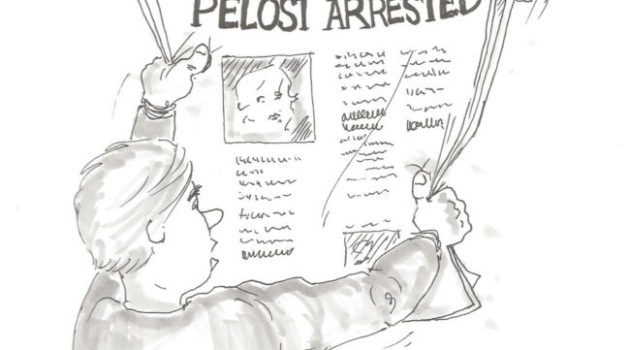 PELOSI ARRESTED